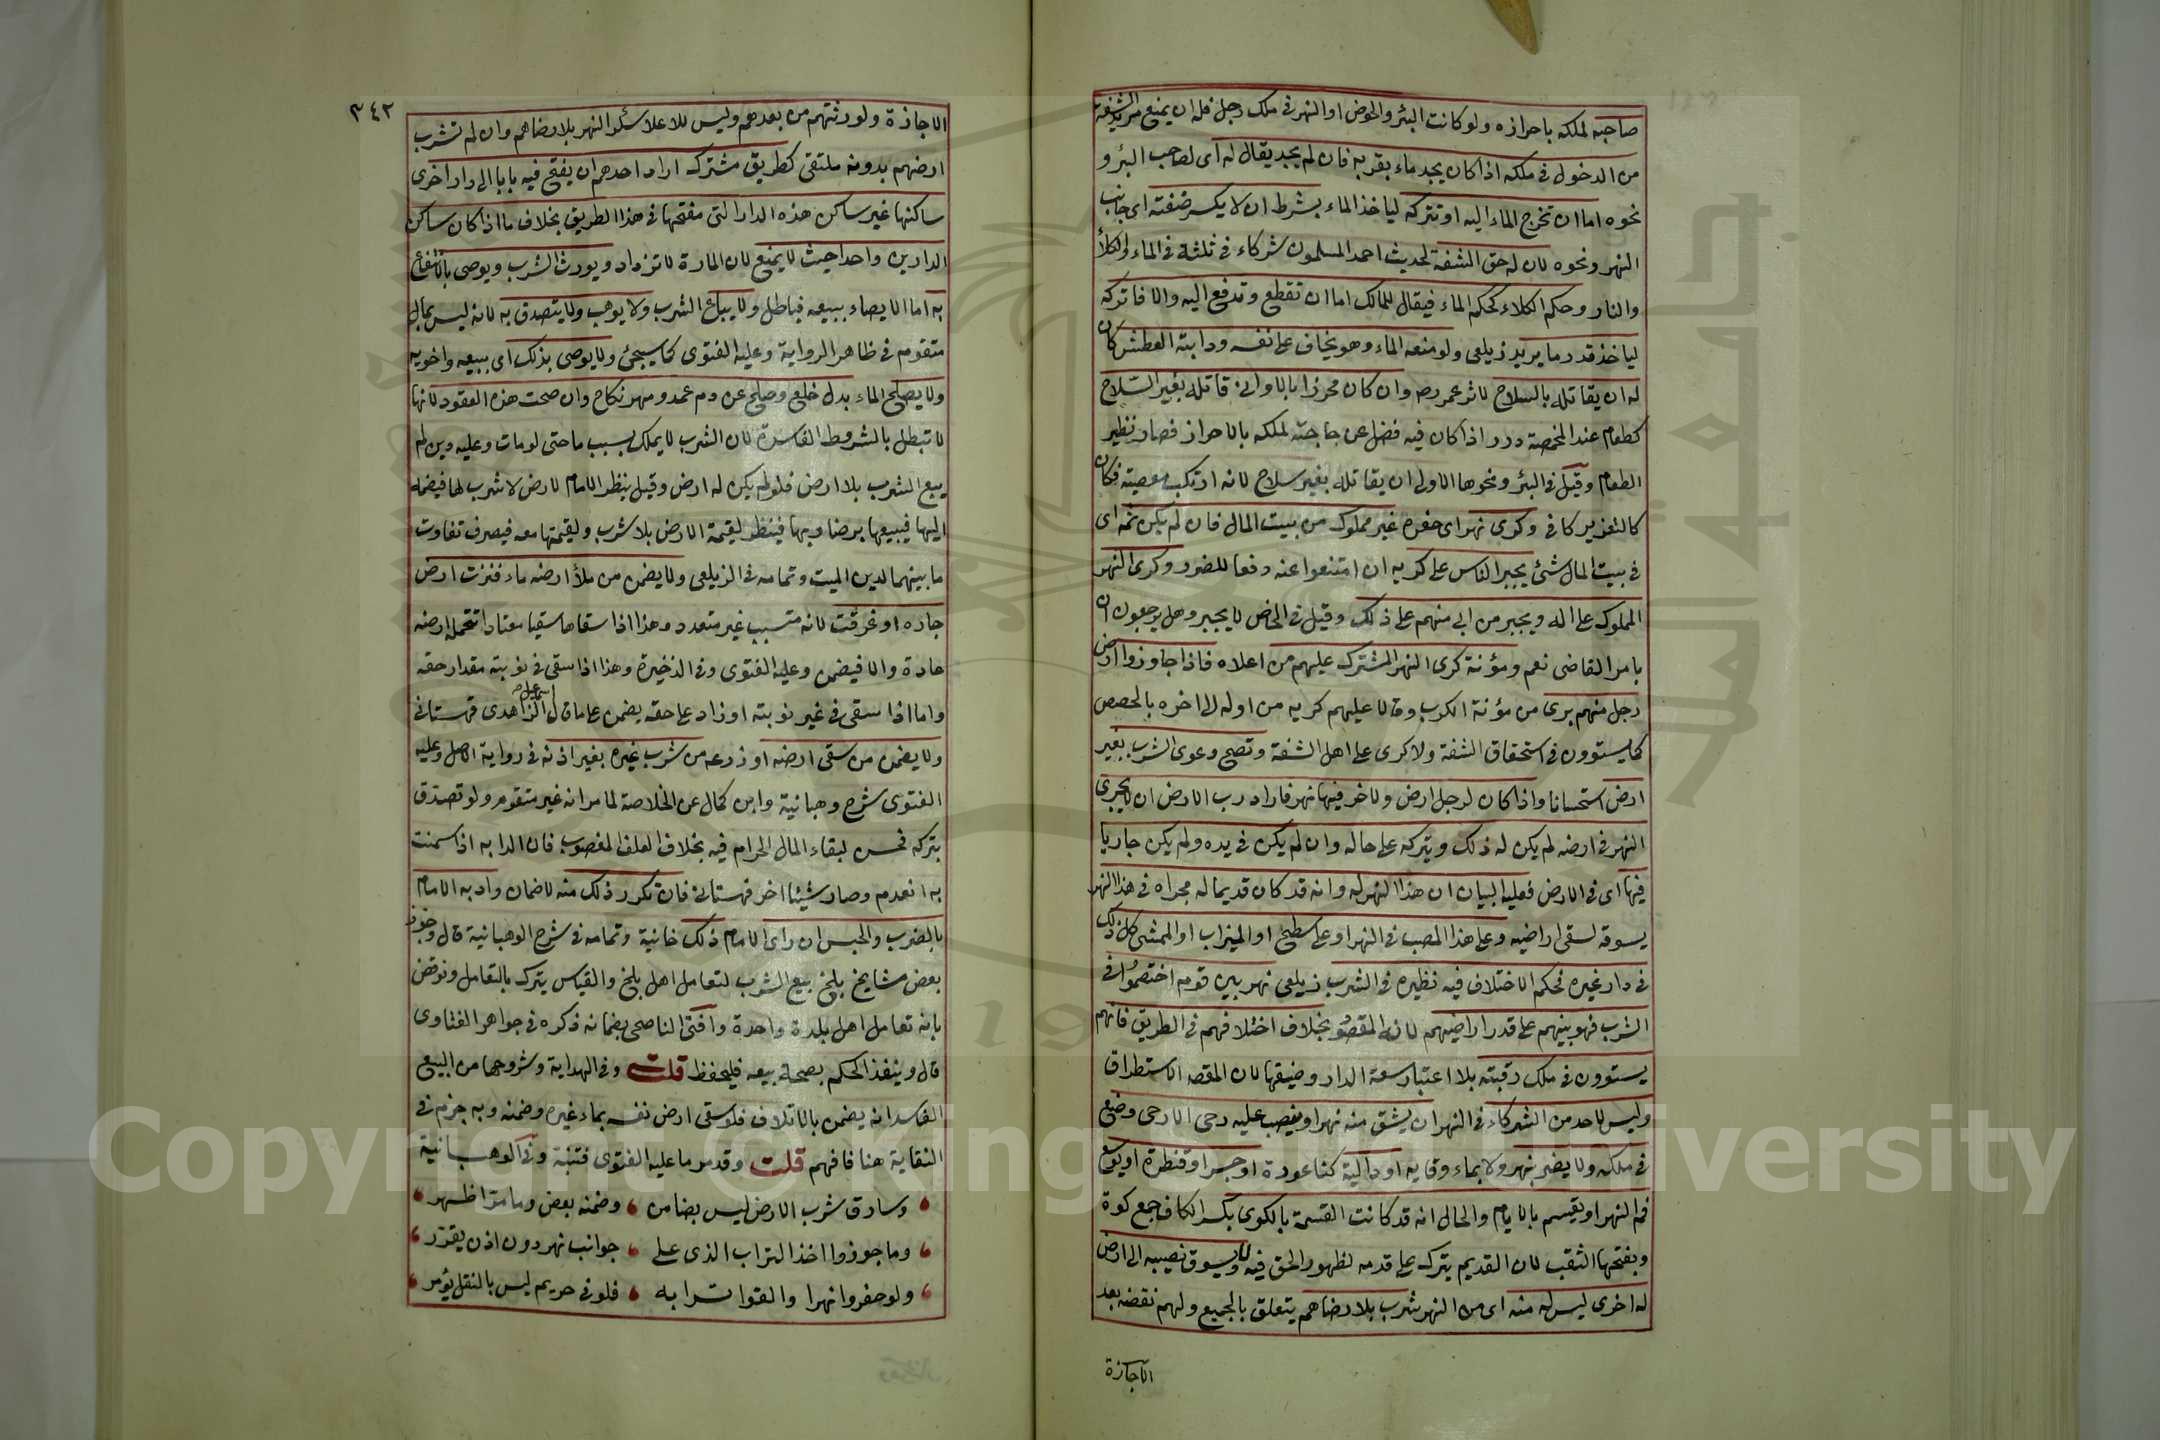 صاحبه لملكه باحرازه ولو كانت البئر والحوض او النهر فى ملك رجل فله ان يمنع مريد الشفة
من الدخول فى ملكه اذا كان يجد ماء بقربه فان لم يجد يقال له اى لصاحب البئر و
نحوه اما ان تخرج الماء اليه او تتركه لياخذ الماء بشرط ان لا يكسر ضفته اى جانب
النهر ونحوه لان له حق الشفة لحديث احمد المسلمون شركاء فى ثلثة فى الماء والكلأ
والنار وحكم الكلاء كحكم الماء فيقال للمالك اما ان تقطع وتدفع اليه والا فاتركه
لياخذ قدر ما يريد زيلعى ولو منعه الماء وهو يخاف على نفسه ودابته العطش كان
له ان يقاتله بالسلاح لاثر عمر رضه وان كان محرزا بالاوانى قاتله بغير السلاح
كطعام عند المخمصة درر اذا كان فيه فضل عن حاجته لملكه بالاحراز فصار نظير
الطعام وقيل فى البئر ونحوها الاولى ان يقاتله بغير سلاح لانه ارتكب معصيته فكان
كالتعزير كافى وكرى نهر اى حفره غير مملوك من بيت المال فان لم يكن ثمه اى
فى بيت المال شئ يجبر الناس على كريه ان امتنعوا عنه دفعا للضرر وكرى النهر
المملوك على اله ويجبر من ابى منهم على ذلك وقيل فى الخاص لا يجبر وهل يرجعون ان
بامر القاضى نعم ومؤنة كرى النهر المشترك عليهم من اعلاه فاذا جاوزوا ارض
رجل منهم برى من مؤنة الكرب وقالا عليهم كريه من اوله الى اخره بالحصص
كما يستوون فى استحقاق الشفة ولا كرى على اهل الشفة وتصح دعوى الشرب بغير
ارض استحسانا واذا كان لرجل ارض ولاخر فيها نهر فاراد رب الارض ان لا يجرى
النهر فى ارضه لم يكن له ذلك ويتركه على حاله وان لم يكن فى يده ولم يكن جاريا
فيها اى فى الارض فعليه البيان ان هذا النهر له وانه قد كان قديما له مجراه فى هذا النهر
يسوقه لسقى اراضيه وعلى هذا المصب فى النهر او على سطح او الميزاب او الممشى كل ذلك
فى دار غيره فحكم الاختلاف فيه نظيره فى الشرب زيلعى نهر بين قوم اختصموا فى
الشرب فهو بينهم على قدر اراضيهم لانه المقصود بخلاف اختلافهم فى الطريق فانهم
يستوون فى ملك رقبته بلا اعتبار سعة الدار وضيقها لان المقصد الاستطراق
وليس لاحد من الشركاء فى النهر ان يشق منه نهرا او ينصب عليه رحى الا رحى وضع
فى ملكه ولا يضر بنهر ولا بماء وقاية او دالية كناعورة او جسرا او قنطرة او يوسع
فم النهر او يقسم بالايام والحال انه قد كانت القسمة بالكوى بكسر الكاف جمع كوة
وبفتحها الثقب لان القديم يترك على قدمه لظهور الحق فيه ولا يسوق نصيبه الى ارض
له اخرى ليس له منه اى من النهر شرب بلا رضاهم يتعلق بالجميع ولهم نقضه بعد
الاجازة
٣٤٢
الاجازة ولورثتهم من بعدهم وليس للاعلا سكر النهر بلا رضاهم وان لم تشرب
ارضهم بدونه ملتقى كطريق مشترك اراد احدهم ان يفتح فيه بابا الى دار اخرى
ساكنها غير ساكن هذه الدار التى مفتحها فى هذا الطريق بخلاف ما اذا كان ساكن
الدارين واحدا حيث لا يمنع لان المارة لا تزداد ويورث الشرب ويوصى بالانتفاع
به اما الايصاء ببيعه فباطل ولا يباع الشرب ولا يوهب ولا يتصدق به لانه ليس بمال
متقوم فى ظاهر الرواية وعليه الفتوى كما سيجئ ولا يوصى بذلك اى ببيعه واخويه
ولا يصلح الماء بدل خلع وصلح عن دم عمد ومهر نكاح وان صحت هذه العقود لانها
لا تبطل بالشروط الفاسدة لان الشرب لا يملك بسبب ما حتى لو مات وعليه دين لم
يبع الشرب بلا ارض فلو لم يكن له ارض وقيل ينظر الامام لارض لا شرب لها فيضمه
اليها فيبيعها برضا ربها فينظر لقيمة الارض بلا شرب ولقيمتها معه فيصرف تفاوت
ما بينهما لدين الميت وتمامه فى الزيلعى ولا يضمن من ملأ ارضه ماء فنزت ارض
جاره او غرقت لانه متسبب غير متعدد وهذا اذا سقاها سقيا معتادا تتحمله ارضه
عادة والا فيضمن وعليه الفتوى وفى الذخيرة وهذا اذا سقى فى نوبته مقدار حقه
واما اذا سقى فى غير نوبته او زاد على حقه يضمن على ما قال اسمعيل الزاهدى قهستانى
ولا يضمن من سقى ارضه او زرعه من شرب غيره بغير اذنه فى رواية الاصل وعليه
الفتوى شرح وهبانية وابن كمال عن الخلاصة لما مر انه غير متقوم ولو تصدق
بتركه فحسن لبقاء المال الحرام فيه بخلاف العلف المغصوب فان الدابه اذا سمنت
به انعدم وصار شيئا اخر قهستانى فان تكرر ذلك منه لا ضمان وادبه الامام
بالضرب والحبس ان راى الامام ذلك خانية وتمامه فى شرح الوهبانية قال وجوز
بعض مشايخ بلخ بيع الشرب لتعامل اهل بلخ والقياس يترك بالتعامل ونوقض
بانه تعامل اهل بلدة واحدة وافتى الناصحى بضمانه ذكره فى جواهر الفتاوى
قال وينفذ الحكم بصحة بيعه فليحفظ قلت وفى الهداية وشروحها من البيع
الفاسد انه يضمن بالاتلاف فلو سقى ارض نفسه بماء غيره وضمنه وبه جزم فى
النقاية هنا فافهم قلت وقد مر ما عليه الفتوى فتنبه وفى الوهبانية
وسارق شرب الارض ليس بضامن وضمنه بعض وما مرّا ظهر
وما جوزوا اخذ التراب الذى على جوانب نهر دون اذن يقرر
ولو حفروا نهرا والقوا ترابه فلو فى حريم ليس بالنقل يؤمر
Copyright © King Saud University